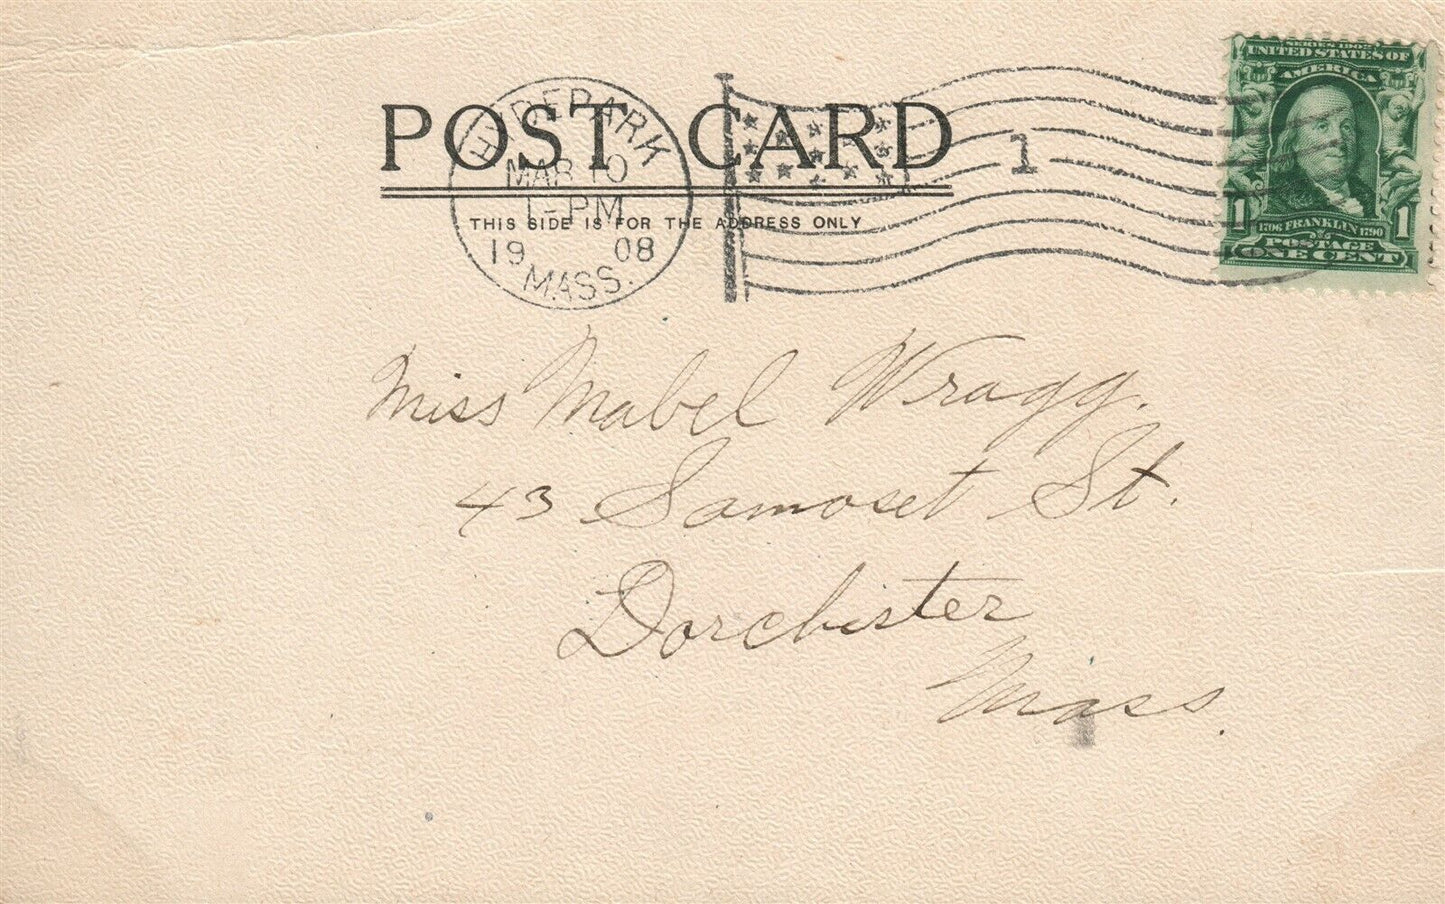 POST CARD
THIS SIDE IS FOR THE ADDRESS ONLY
HYDE PARK
MAR 10
1-PM
19 08
MASS.
1
SERIES 1902
UNITED STATES OF
AMERICA
1 1706 FRANKLIN 1790 1
POSTAGE
ONE CENT
Miss Mabel Wragg.
43 Samoset St.
Dorchister
Mass.